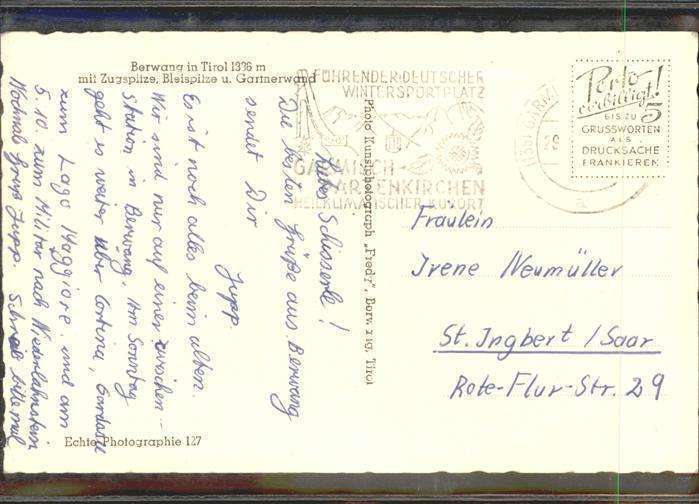 Berwang in Tirol 1336 m
mit Zugspitze, Bleispitze u. Gartnerwand
FÜHRENDER DEUTSCHER
WINTERSPORTPLATZ
GARMISCH
PARTENKIRCHEN
HEILKLIMATISCHER KURORT
Porto
verbilligt!
5
BIS ZU
GRUSSWORTEN
ALS
DRUCKSACHE
FRANKIEREN
Liebes Schisserle!
Die besten Grüße aus Berwang
sendet Dir
Jupp
Es ist noch alles beim alten.
Wir sind nur auf einer Zwischen-
station in Berwang. Am Sonntag
geht es weiter über Cortina, Gardasee
zum Lago Maggiore und am
5.10. zum Militär nach Niederlahnstein
Nochmal Gruß Jupp. Schreib bitte mal
Photo Kunstphotograph „Fredy", Berwang, Tirol
Fräulein
Irene Neumüller
St. Ingbert / Saar
Rote-Flur-Str. 29
Echte Photographie 127